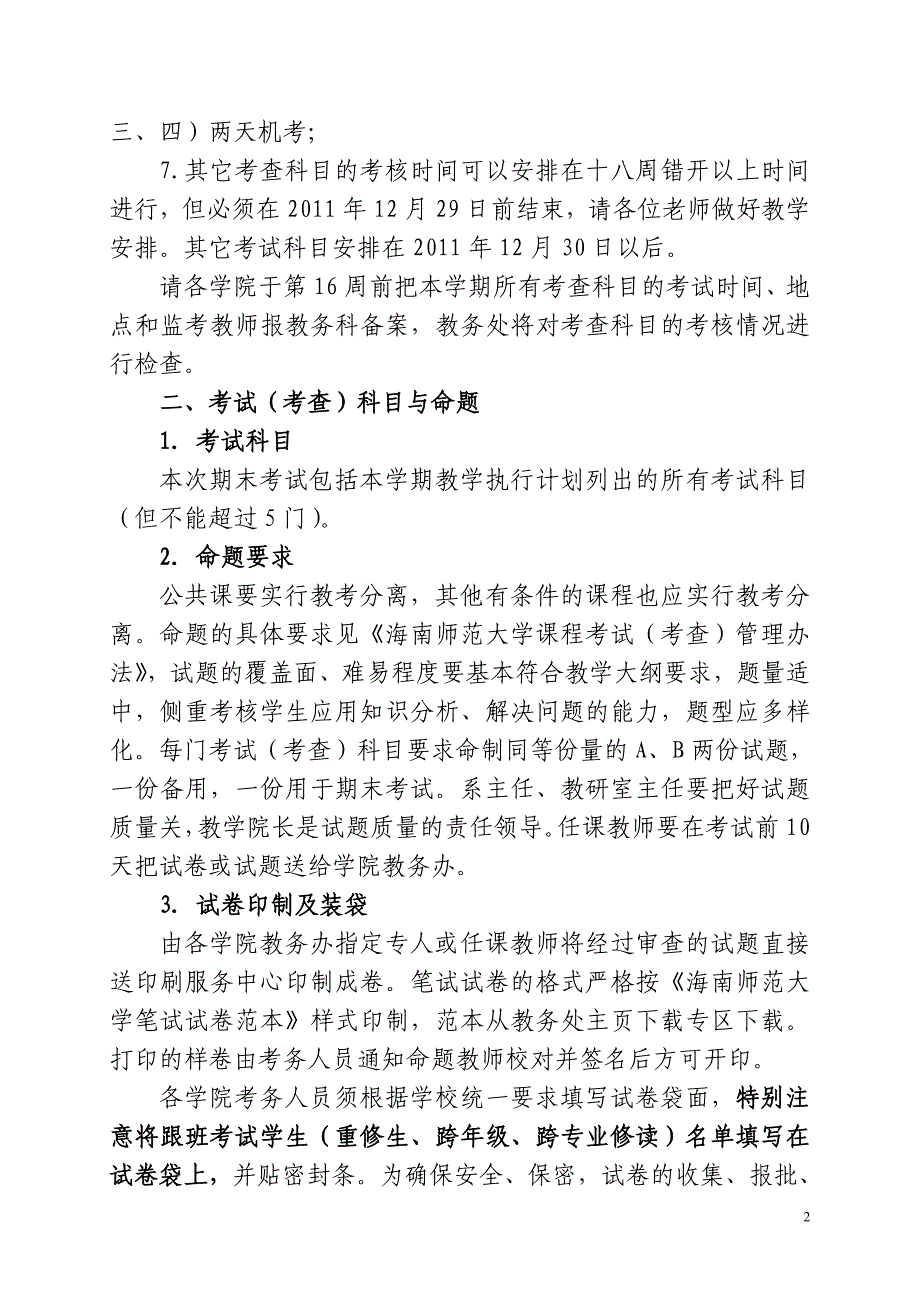 三、四）两天机考；
7.其它考查科目的考核时间可以安排在十八周错开以上时间
进行，但必须在 2011 年 12 月 29 日前结束，请各位老师做好教学
安排。其它考试科目安排在 2011 年 12 月 30 日以后。
请各学院于第 16 周前把本学期所有考查科目的考试时间、地
点和监考教师报教务科备案，教务处将对考查科目的考核情况进
行检查。
二、考试（考查）科目与命题
1. 考试科目
本次期末考试包括本学期教学执行计划列出的所有考试科目
（但不能超过 5 门）。
2. 命题要求
公共课要实行教考分离，其他有条件的课程也应实行教考分
离。命题的具体要求见《海南师范大学课程考试（考查）管理办
法》，试题的覆盖面、难易程度要基本符合教学大纲要求，题量适
中，侧重考核学生应用知识分析、解决问题的能力，题型应多样
化。每门考试（考查）科目要求命制同等份量的 A、B 两份试题，
一份备用，一份用于期末考试。系主任、教研室主任要把好试题
质量关，教学院长是试题质量的责任领导。任课教师要在考试前 10
天把试卷或试题送给学院教务办。
3. 试卷印制及装袋
由各学院教务办指定专人或任课教师将经过审查的试题直接
送印刷服务中心印制成卷。笔试试卷的格式严格按《海南师范大
学笔试试卷范本》样式印制，范本从教务处主页下载专区下载。
打印的样卷由考务人员通知命题教师校对并签名后方可开印。
各学院考务人员须根据学校统一要求填写试卷袋面，特别注
意将跟班考试学生（重修生、跨年级、跨专业修读）名单填写在
试卷袋上，并贴密封条。为确保安全、保密，试卷的收集、报批、
2